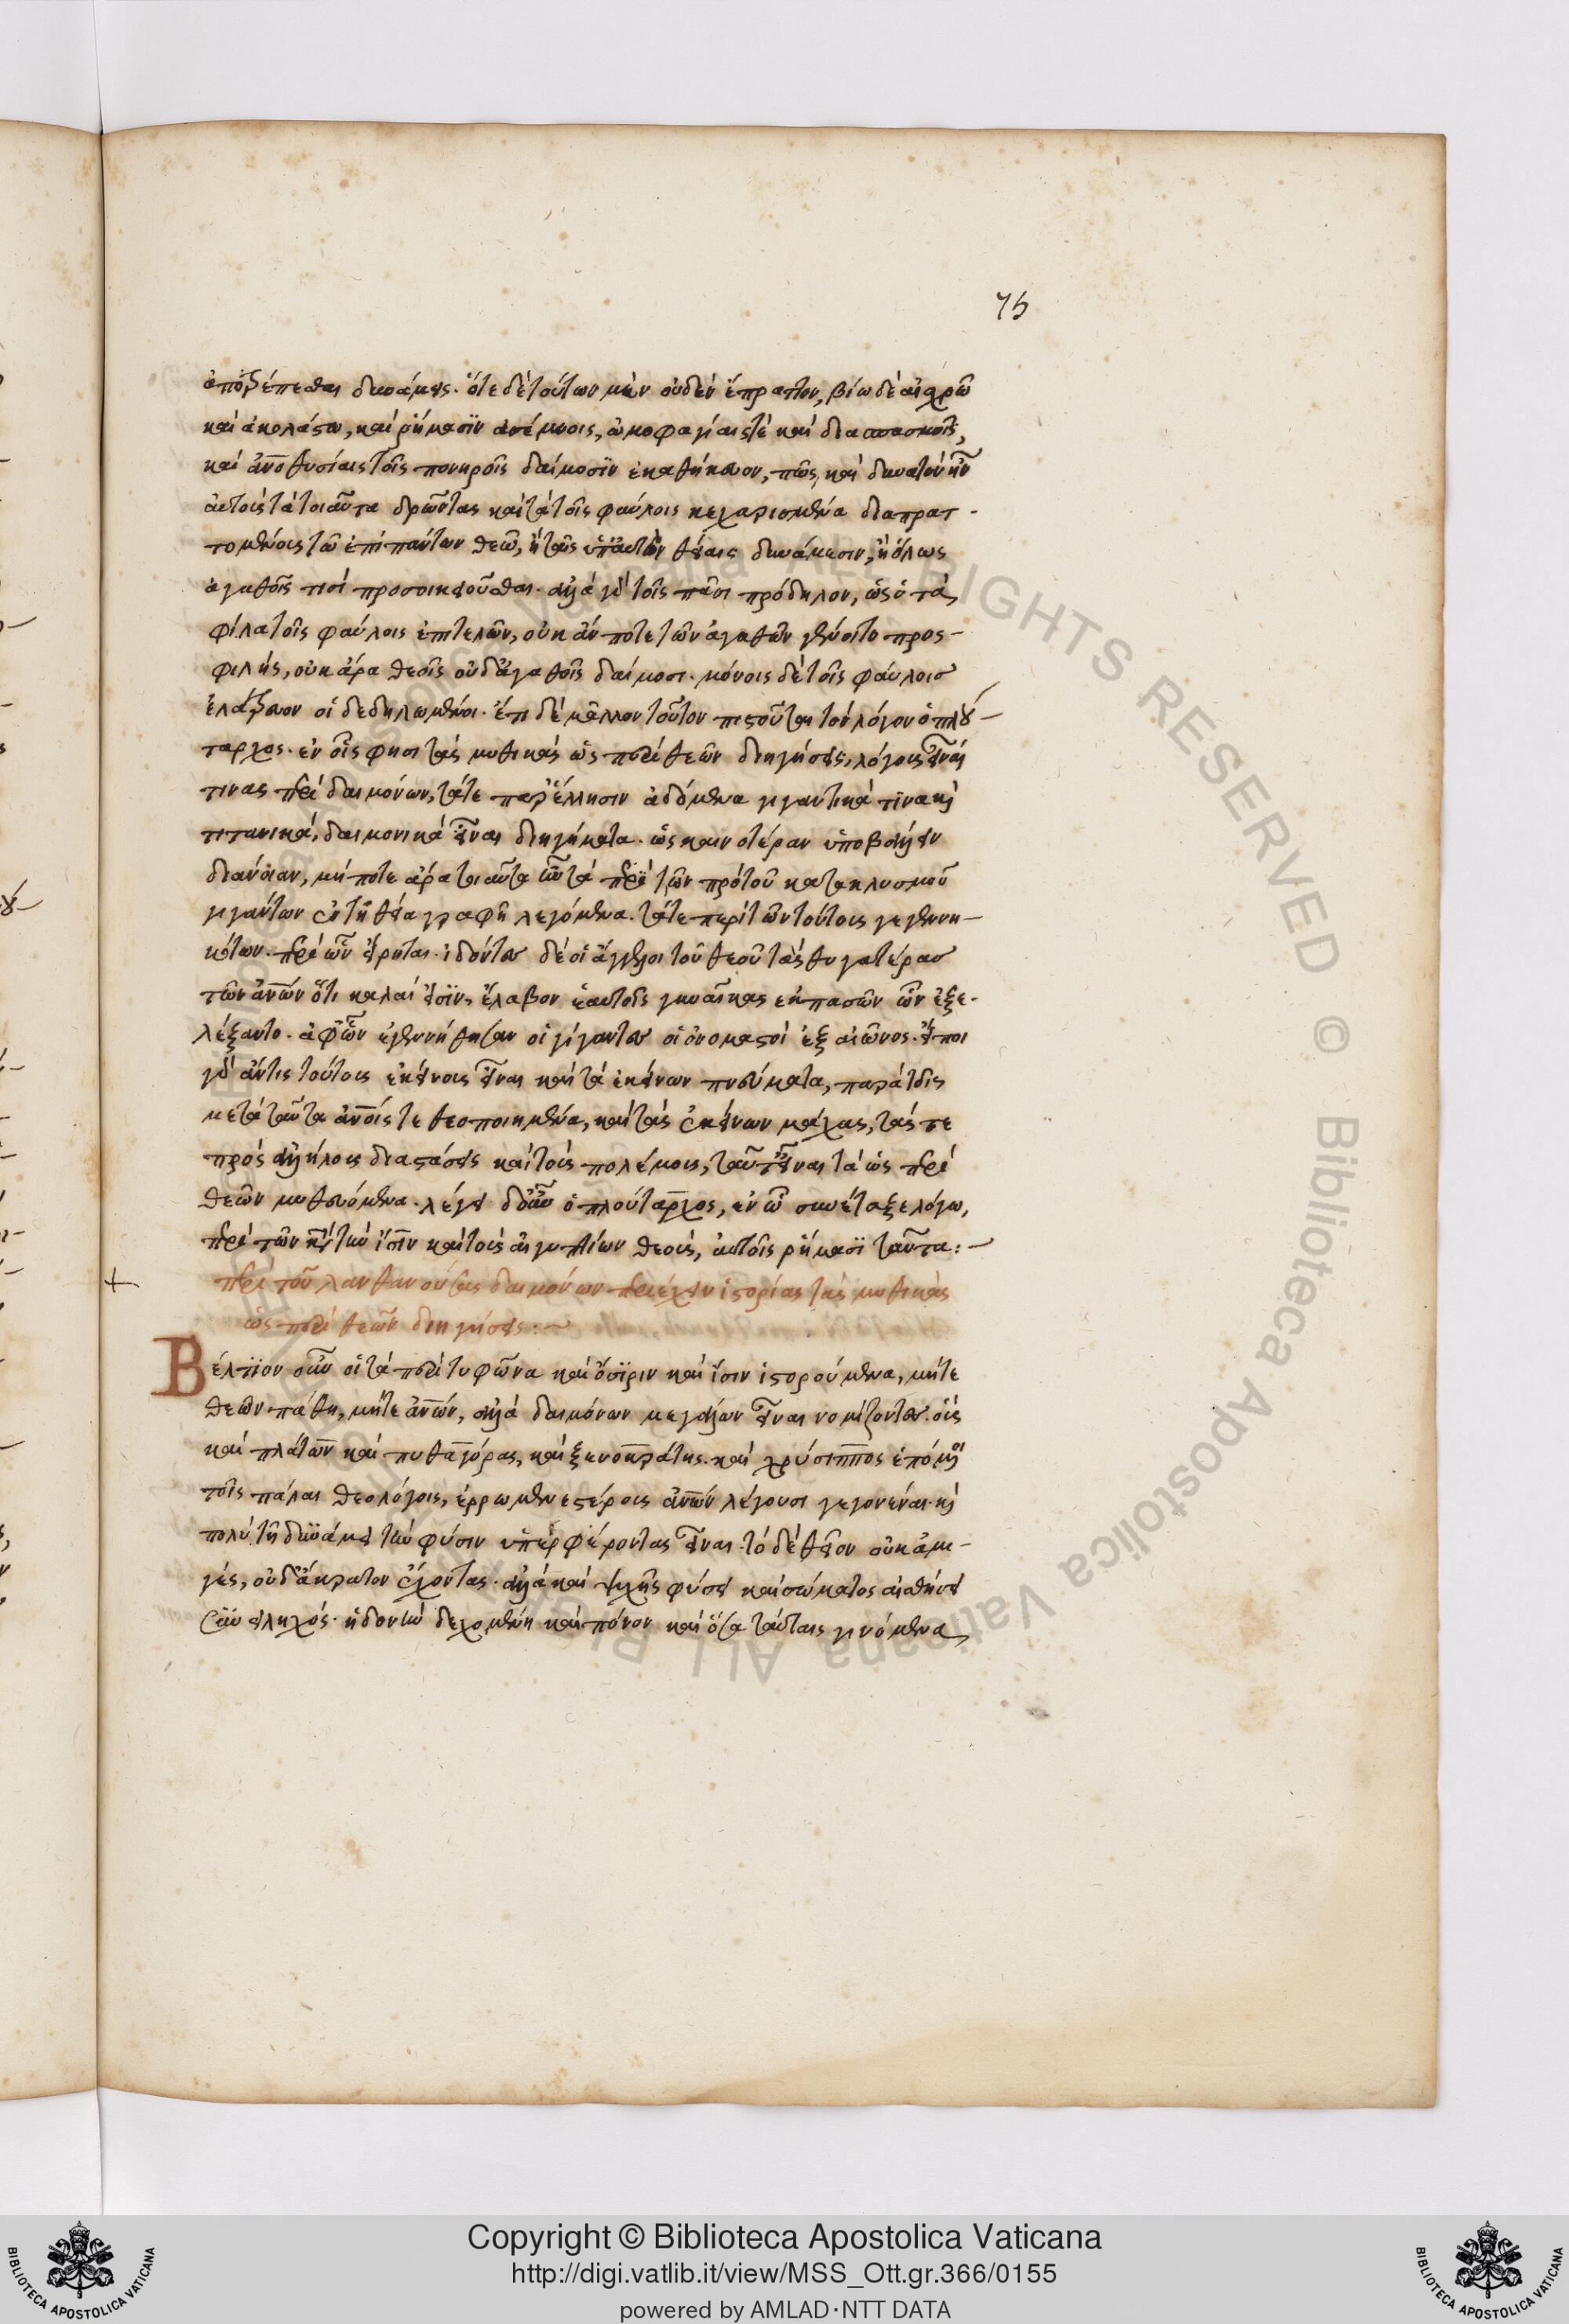 75
ἀποτρέπεσθαι δυνάμεις. ὅτε δὲ τούτων μὲν οὐδὲν ἔπραττον, βίω δὲ αἰσχρῶ
καὶ ἀκολάστω, καὶ ῥήμασϊν ἀσέμνοις, ὠμοφαγίαις τὲ καὶ διασπασμοῖς,
καὶ ἀνοθυσίαις τοῖς πονηροῖς δαίμοσϊν ἐκαθήκεσαν, πῶς καὶ δυνατὸν ἦν
αὐτοὺς τὰ τοιαῦτα δρῶντας καὶ τὰ τοῖς φαύλοις κεχαρισμένα διαπρατ-
τομένους τῶ ἐπὶ πάντων θεῶ, ἢ ταῖς ὑπ' αὐτὸν θείαις δυνάμεσιν, ἢ ὅλως
ἀγαθοῖς τισὶ προσοικειοῦσθαι. ἀλλὰ γὰρ τοῖς πᾶσι πρόδηλον, ὡς ὁ τὰ
φίλα τοῖς φαύλοις ἐπιτελῶν, οὐκ ἄν ποτε τῶν ἀγαθῶν γένοιτο προς-
φιλής, οὐκ ἄρα θεοῖς οὐδ' ἀγαθοῖς δαίμοσι. μόνοις δὲ τοῖς φαύλοισ
ἐλάτρευον οἱ δεδηλωμένοι. ἔτι δὲ μᾶλλον τοῦτον πιστοῦται τὸν λόγον ὁ πλού-
ταρχος. ἐν οἷς φησι τὰς μυθικὰς ὡς περὶ θεῶν διηγήσεις, λόγους εἶναί
τινας περὶ δαιμόνων, τά τε παρ' ἕλλησιν ἀδόμενα γιγαντικὰ τϊνα καὶ
τιτανικὰ, δαιμονικὰ εἶναι διηγήματα. ὡς καινοτέραν ὑποβάλλειν
διάνοιαν, μή ποτε ἄρα τοιαῦτα ἦν τὰ περὶ τῶν πρὸ τοῦ κατακλυσμοῦ
γιγάντων ἐν τῆ θεία γραφῆ λεγόμενα. τά τε περὶ τῶν τούτους γεγεννη-
κότων. περὶ ὧν εἴρηται. ἰδόντεσ δὲ οἱ ἄγγελοι τοῦ θεοῦ τὰς θυγατέρασ
τῶν ἀνων ὅτι καλαί εἰσϊν, ἔλαβον ἑαυτοῖς γυναῖκας ἐκ πασῶν ὧν ἐξε-
λέξαντο. ἀφ' ὧν ἐγεννήθησαν οἱ γίγαντεσ οἱ ὀνομαστοὶ ἐξ αἰῶνος. εἴποι
γὰρ ἄν τις τούτους ἐκείνους εἶναι καὶ τὰ ἐκείνων πνεύματα, παρὰ τοῖς
μετὰ ταῦτα ἀνοις τεθεοποιημένα, καὶ τὰς ἐκείνων μάχας, τάς τε
πρὸς ἀλλήλους διαστάσεις καὶ τοὺς πολέμους, ταῦτ' εἶναι τὰ ὡς περὶ
θεῶν μυθευόμενα. λέγει δ' οὖν ὁ πλούταρχος, ἐν ὧ συνέταξε λόγω,
περὶ τῶν κατὰ τὴν ἴσϊν καὶ τοὺς αἰγυπτίων θεοὺς, αὐτοῖς ῥήμασϊ ταῦτα:-
περὶ τοῦ λανθανούσας δαιμόνων περιέχειν ἱστορίας τὰς μυθικὰς
ὡς περὶ θεῶν διηγήσεις:~
Βέλτϊον οὖν οἱ τὰ περὶ τυφῶνα καὶ ὄσϊριν καὶ ἴσιν ἱστορούμενα, μήτε
θεῶν πάθη, μήτε ἀνων, ἀλλὰ δαιμόνων μεγάλων εἶναι νομίζοντεσ. οὓς
καὶ πλάτων καὶ πυθαγόρας, καὶ ξενοκράτης. καὶ χρύσιππος ἑπόμενοι
τοῖς πάλαι θεολόγοις, ἐρρωμενεστέρους ἀνων λέγουσι γεγονέναι. καὶ
πολὺ τῆ δυνάμει τὴν φύσιν ὑπερφέροντας εἶναι. τὸ δὲ θεῖον οὐκ ἀμι-
γὲς, οὐδ' ἄκρατον ἔχοντας. ἀλλὰ καὶ ψυχῆς φύσει καὶ σώματος αἰσθήσει
συνειληχὸς. ἡδονὴν δεχομένη καὶ πόνον καὶ ὅσα ταύταις γινόμενα
Copyright © Biblioteca Apostolica Vaticana
http://digi.vatlib.it/view/MSS_Ott.gr.366/0155
powered by AMLAD·NTT DATA